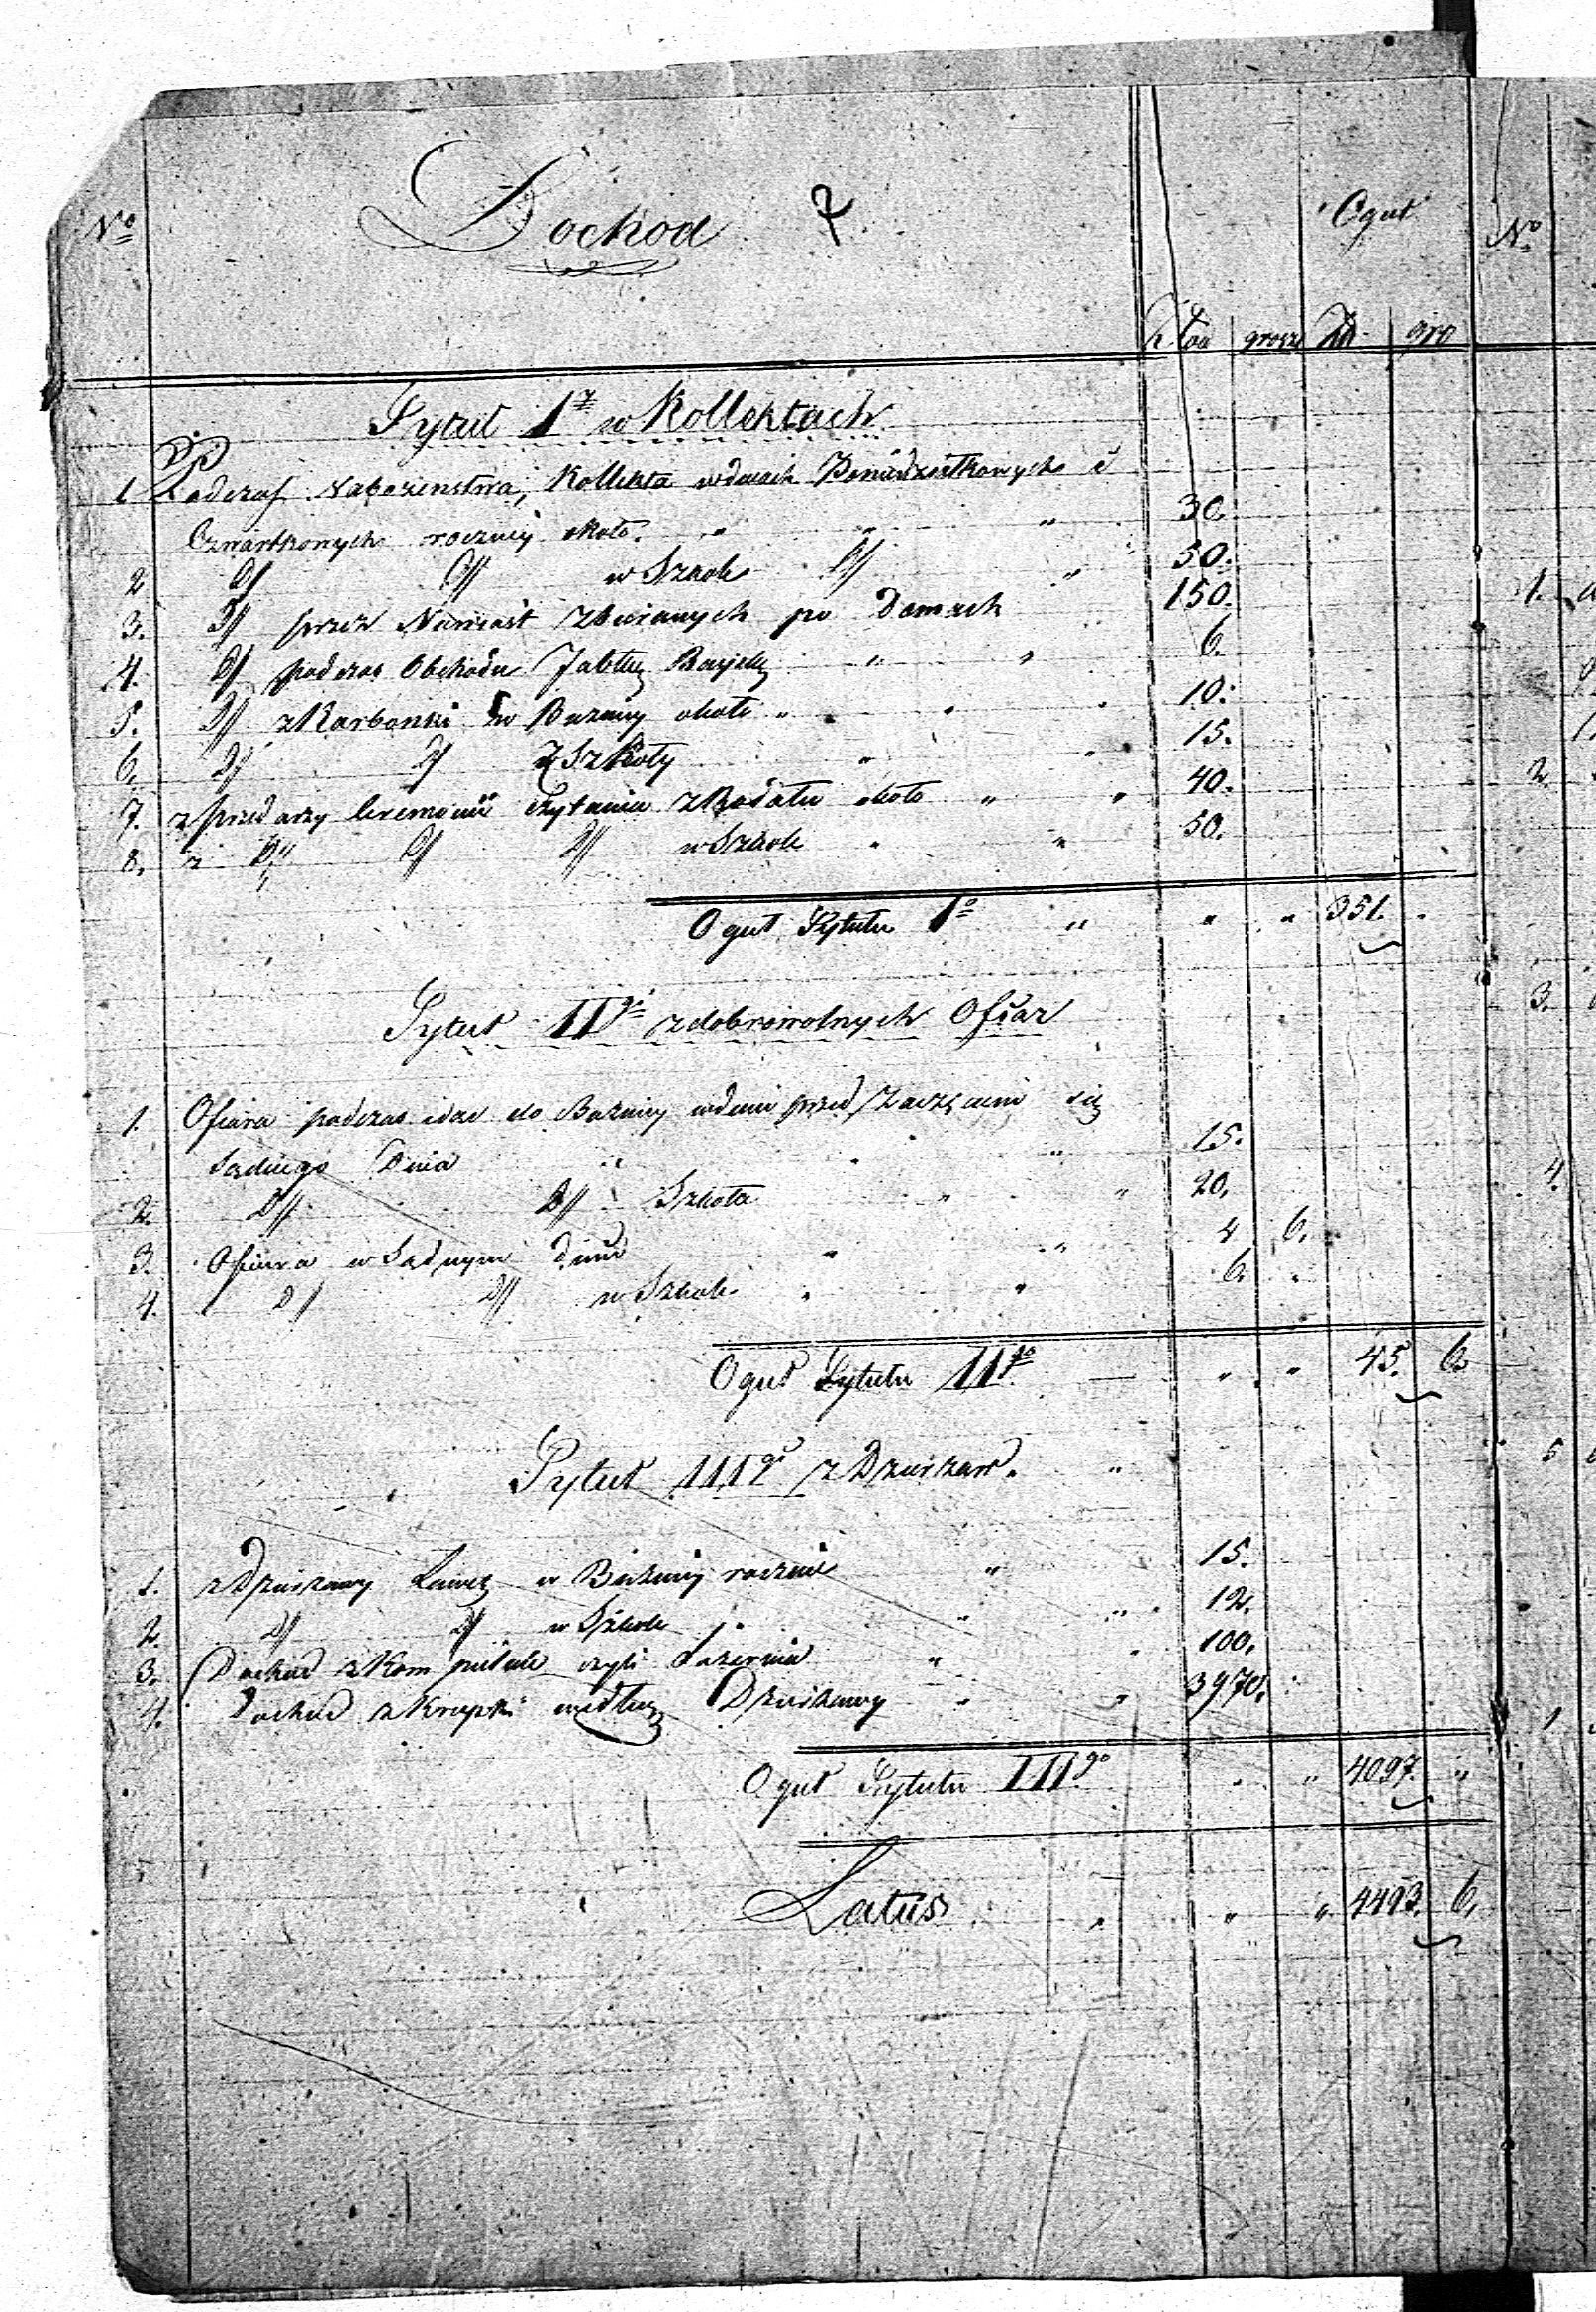 No Dochod 7 Ogut No
złoty grosze Zł gro
Tytuł 1y w Kollektach
1 Podczas Nabozenstwa, Kollekta w dniach Poniedziałkowych i
Czwartkowych roczniej około " " " 30.
2. D// D// w Szkole D// " 50.
3. D// przez Niewiast zbieranych po Domach 150.
4. D// podczas Obchodu " " 6.
5. D// z Karbonki w Boznicy około " " " 10.
6. D// D// z Szkoły " " 15.
7. z przedarzy Ceremonii Czytania z Rodału około " " 40.
8. z D// D// D// w Szkole " " 50.
Ogut Tytułu 1o " " " 351.
Tytuł IIgi z dobrowolnych Ofiar
1. Ofiara podczas idąc do Boznicy w dniu przed zaczęciem się
Sądnego Dnia " " " 15.
2. D// D// Szkoła " " 20.
3. Ofiara w Sądnym dniu " " 4 6.
4. D// D// w Szkole " " 6 "
Ogut Tytułu IIgo — " " 45. 6
Tytuł IIIgi z Dzierzaw. "
1. z Dzierzawy Ławek w Boznicy rocznie " 15.
2. D// D// w Szkole " " 12.
3. Dochod z czyli Łaziernia " " 100.
4. Dochod z Krupki według Dzierzawy " " 3970.
Ogut Tytułu IIIgo " " 4097. "
Latus " " " 4493. 6.